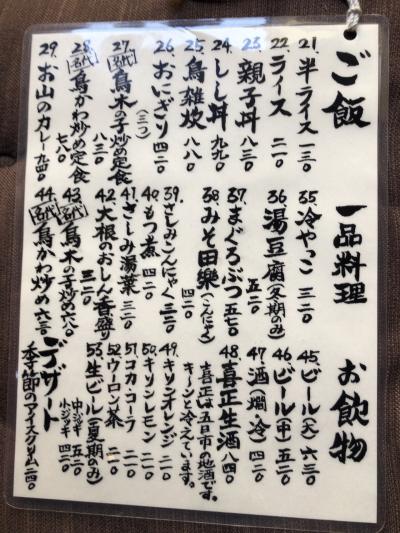 ご飯
21. 半ライス 一三〇
22. ライス 二一〇
23. 親子丼 八三〇
24. しし丼 九九〇
25. 鳥雑炊 八八〇
26. おにぎり(三つ) 四二〇
27. 名代 鳥木の子炒め定食 八三〇
28. 名代 鳥かわ炒め定食 七八〇
29. お山のカレー 九四〇
一品料理
35. 冷やっこ 三二〇
36. 湯豆腐(冬期のみ) 五二〇
37. まぐろぶつ 五七〇
38. みそ田楽(こんにゃく) 四二〇
39. さしみこんにゃく 三二〇
40. もつ煮 四二〇
41. さしみ湯葉 三二〇
42. 大根のおしん香盛り 三二〇
43. 名代 鳥木の子炒め 六八〇
44. 名代 鳥かわ炒め 六三〇
お飲物
45. ビール(大) 六三〇
46. ビール(中) 五二〇
47. 酒(燗・冷) 四二〇
48. 喜正生酒 八四〇
喜正は五日市の地酒です。
キ〜ンと冷えています。
49. キリンオレンジ 二一〇
50. キリンレモン 二一〇
51. コカ・コーラ 二一〇
52. ウーロン茶 二一〇
53. 生ビール(夏期のみ)
中ジョッキ 五二〇
小ジョッキ 四二〇
デザート
季節のアイスクリーム 二四〇